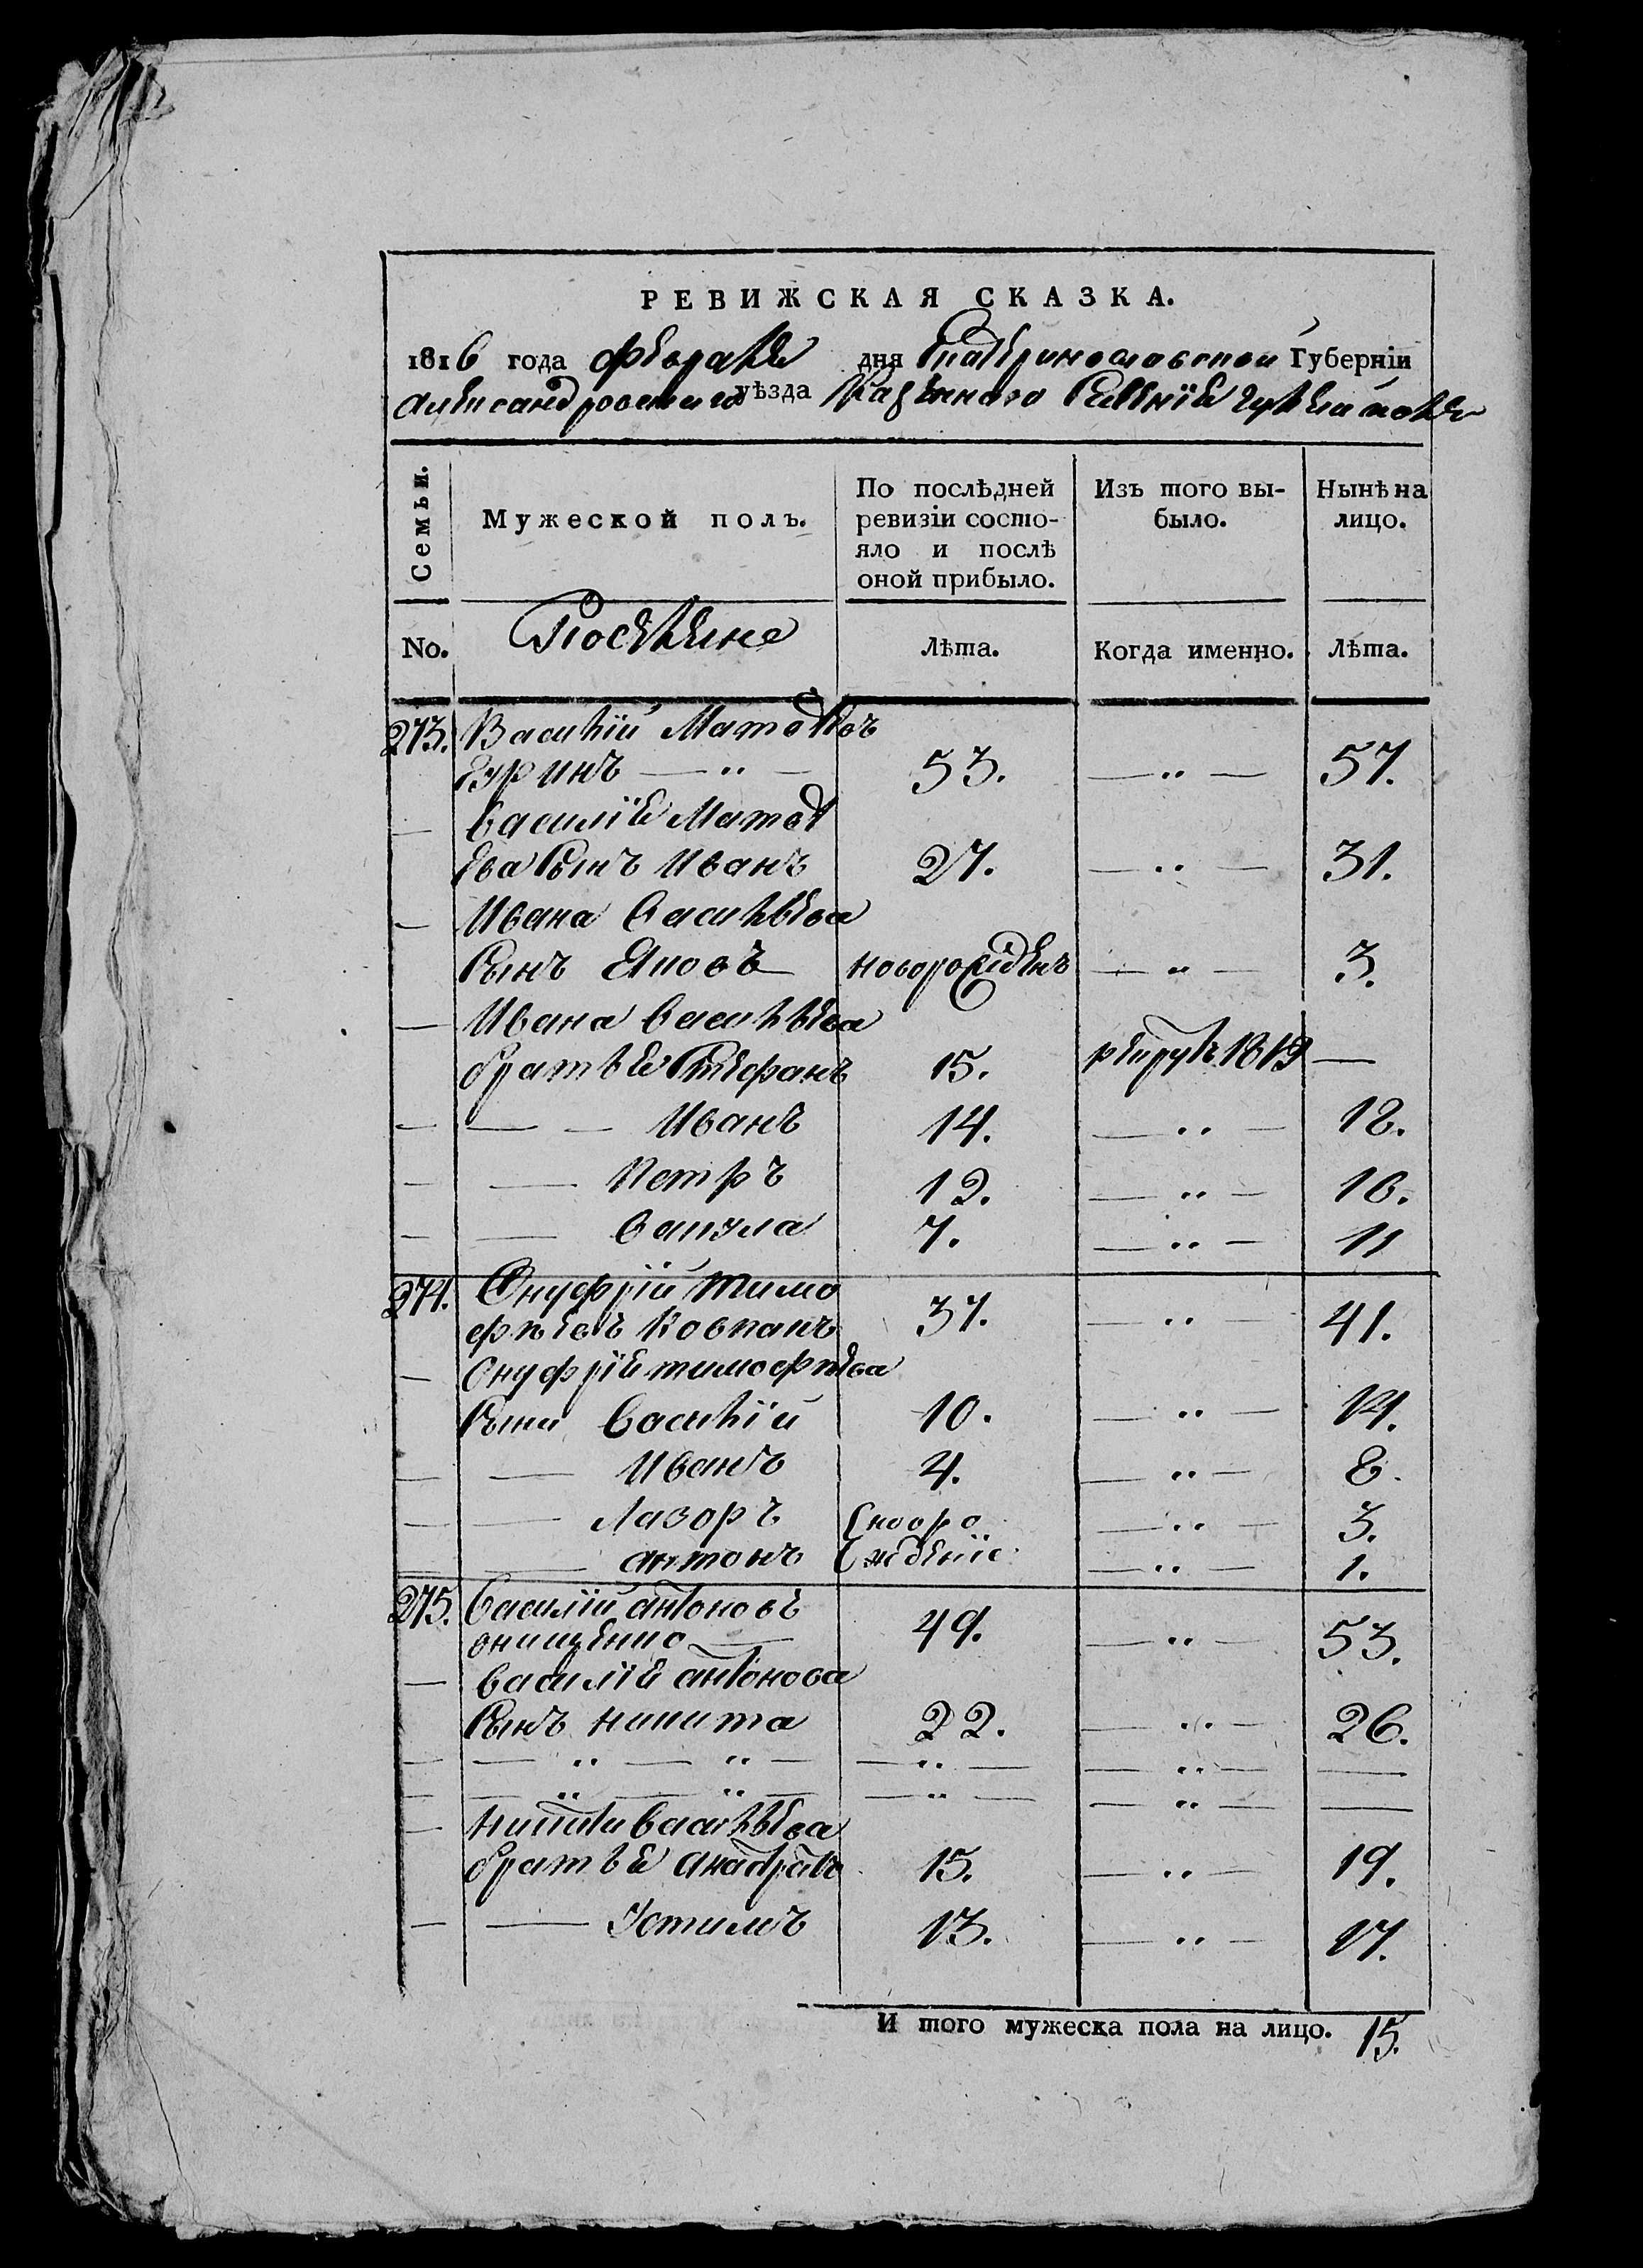 РЕВИЖСКАЯ СКАЗКА.
1816 года февраля дня Екатеринославской Губерніи
александровскаго уѣзда Казеннаго Селенія гуляй поля
Семьи. Мужеской полъ. По послѣдней ревизіи состояло и послѣ оной прибыло. Изъ того выбыло. Нынѣ на лицо.
No. Поселяне Лѣта. Когда именно. Лѣта.
273. Василій Матвѣевъ
Гуринъ — „ — 53. — „ — 57.
— василія Матвѣ
ева Сынъ Иванъ 27. — „ — 31.
— Ивана васильева
Сынъ Яковъ новорожденъ — „ — 3.
— Ивана васильева
братья Стефанъ 15. рекрут. 1813 —
— — — Иванъ 14. — „ — 18.
— — Петръ 12. — „ — 16.
— — вакула 7. — „ — 11
274. Онуфрій тимо
фѣевъ Ковпакъ 37. — „ — 41.
— Онуфрія тимофѣева
Сыны василій 10. — „ — 14.
— — Иванъ 4. — „ — 8.
— — Лазоръ новоро — „ — 3.
— антонъ жденіе — „ — 1.
275. василій антоновъ
онищенко — 49. — „ — 53.
— василія антонова
Сынъ никита 22. — „ — 26.
— — „ — „ — — „ — — „ — —
— — „ — „ — — „ — — „ — —
— никиты васильева
братья 15. — „ — 19.
— — Устимъ 13. — „ — 17.
И того мужеска пола на лицо. 15.